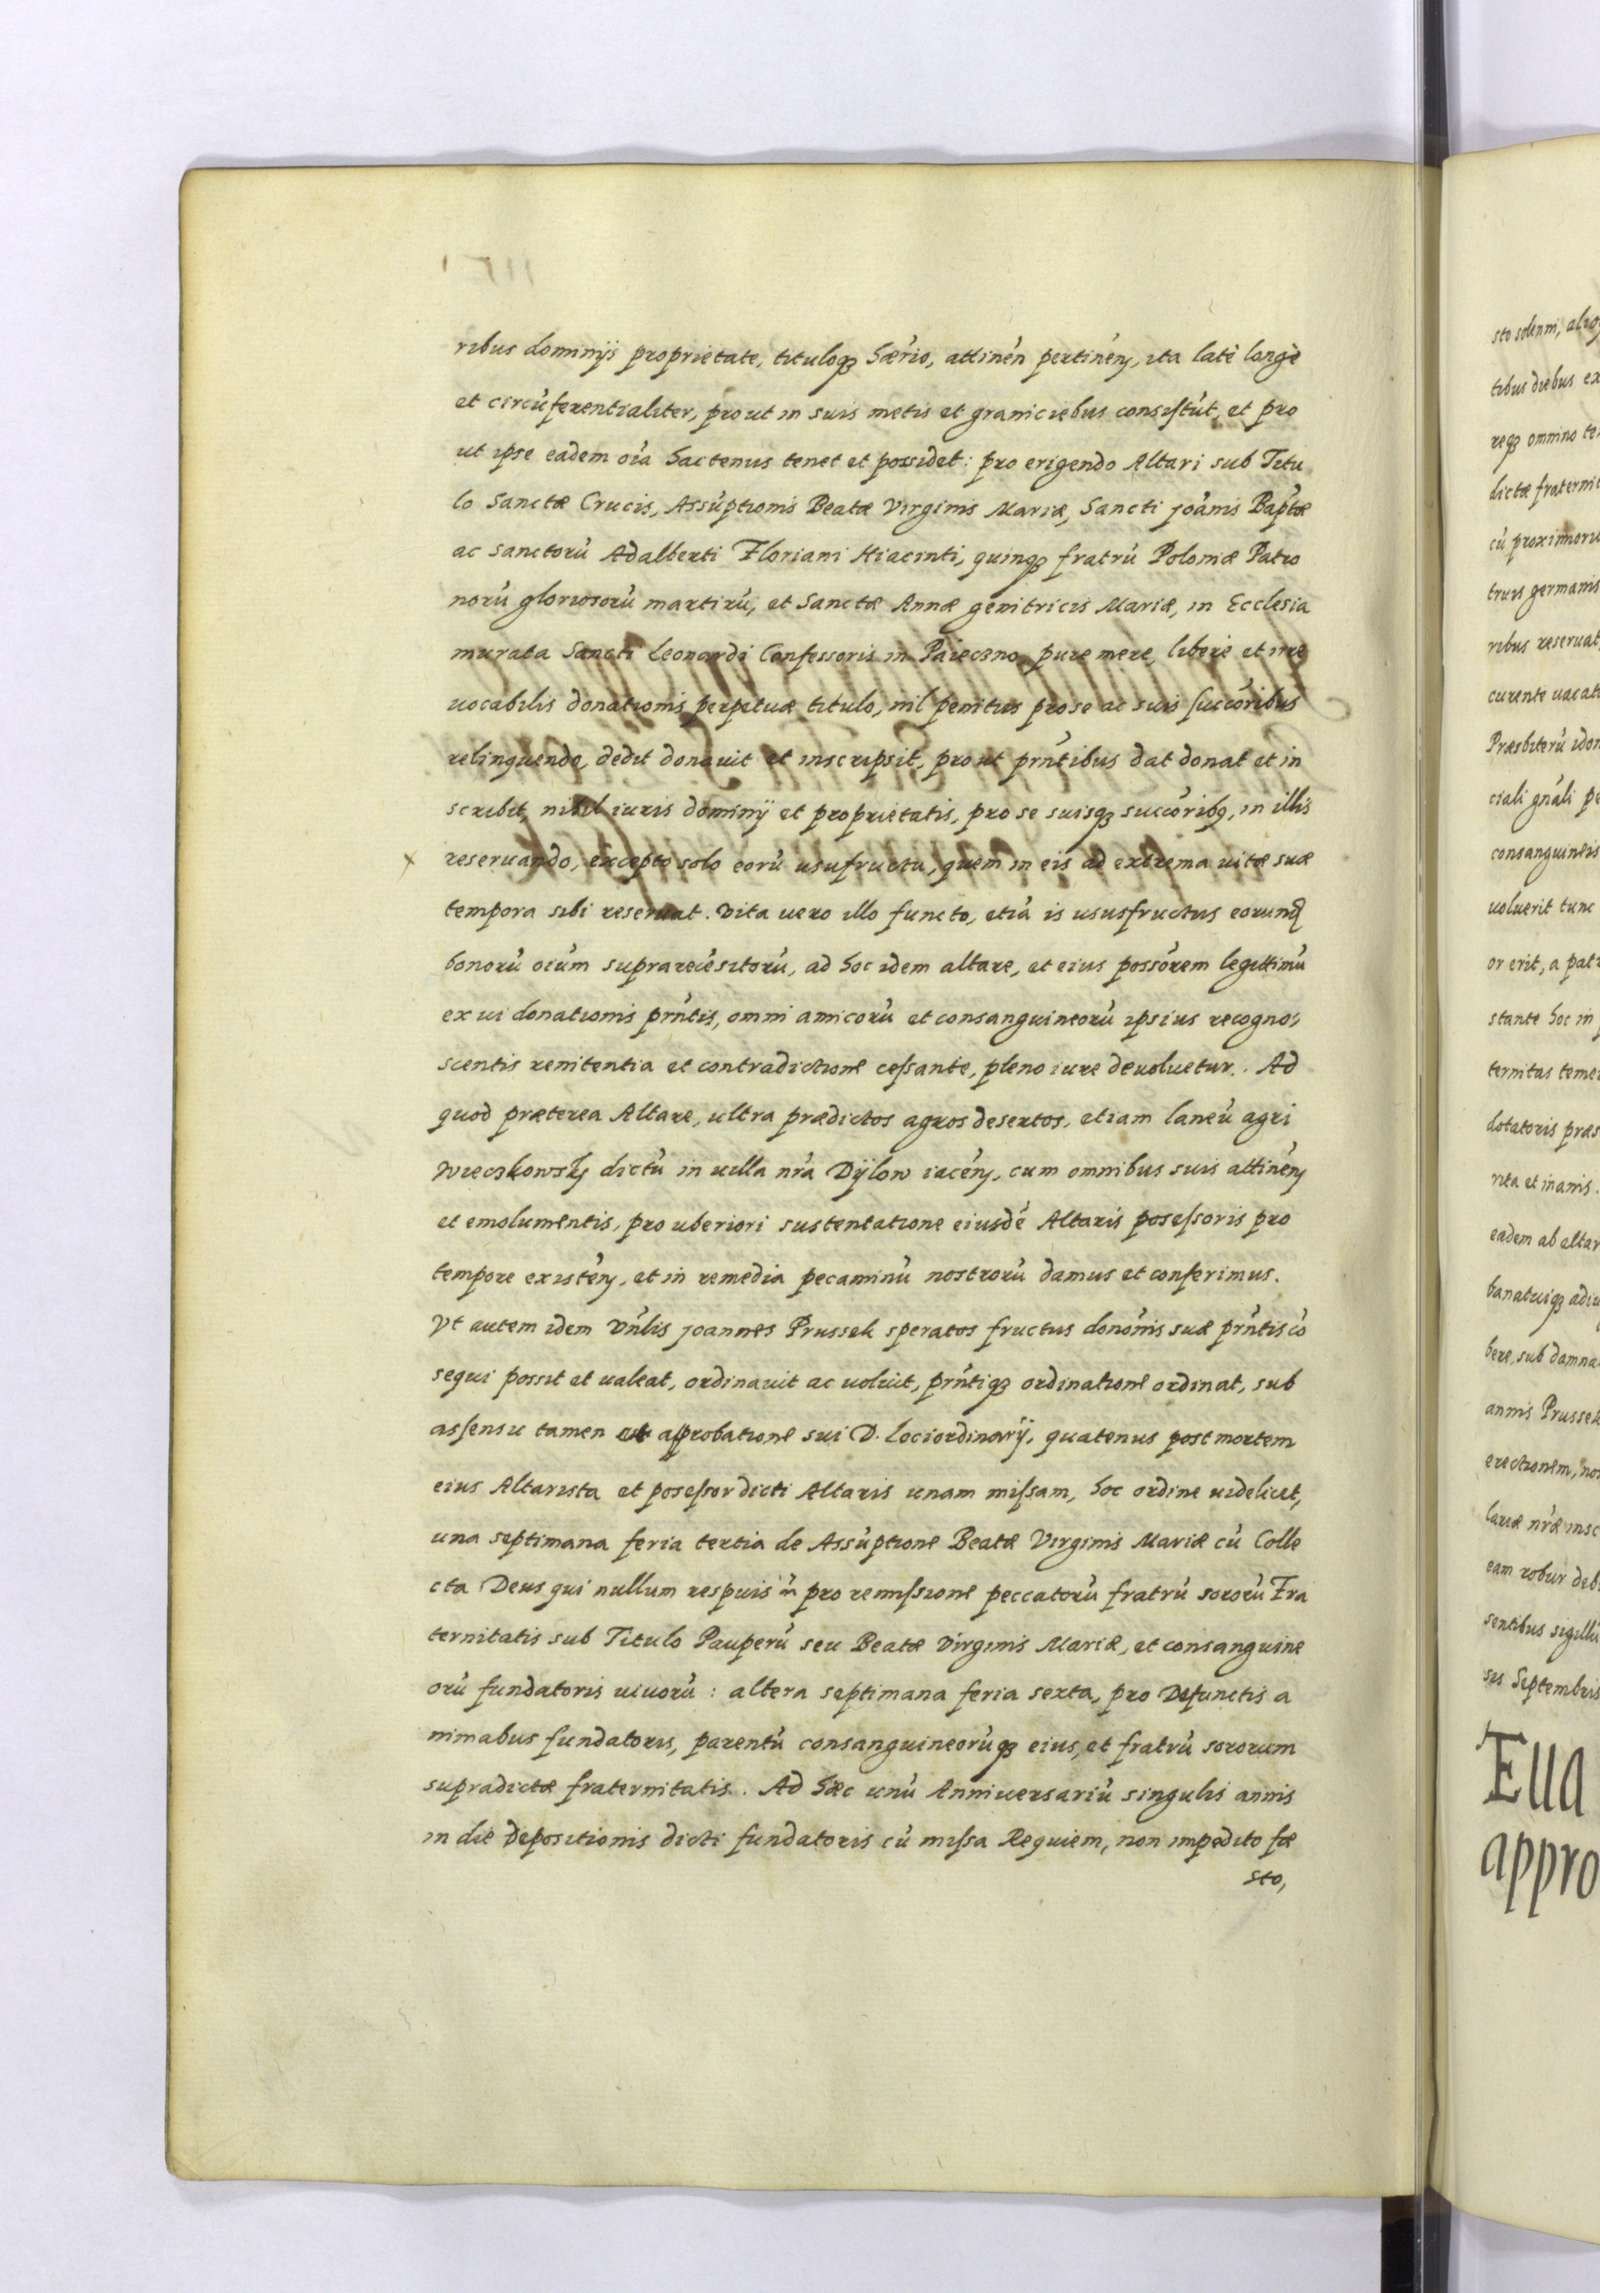 ribus dominijs proprietate, tituloq3 hær̃io, attineñ pertineñ, ita latè longè
et circũferentialiter, prout in suis metis et graniciebus consistũt, et pro
ut ipse eadem oĩa hactenus tenet et possidet: pro erigendo Altari sub Titu
lo Sanctæ Crucis, Assũptionis Beatæ Virginis Mariæ, Sancti joãnis Bap̃tæ
ac Sanctorũ Adalberti Floriani Hiacinti, quinq3 fratrũ Poloniæ Patro
norũ gloriosorũ martirũ, et Sanctæ Annæ genitricis Mariæ, in Ecclesia
murata Sancti Leonardi Confessoris in Paieczno, pure mere, liberè et irre
uocabilis donationis perpetuæ titulo, nil penitus pro se ac suis succõribus
relinquendo, dedit donauit et inscripsit, prout prñtibus dat donat et in
scribit, nihil iuris dominij et proprietatis, pro se suisq3 succõrib9, in illis
reseruando, excepto solo eorũ usufructu, quem in eis ad extrema uitæ suæ
tempora sibi reseruat. Vita uero illo functo, etiã is ususfructus eorund
bonorũ oĩum suprarecẽsitorũ, ad hoc idem altare, et eius possõrem legittimũ
ex ui donationis prñtis, omni amicorũ et consanguineorũ ipsius recogno:
scentis renitentia et contradictione cessante, pleno iure deuoluetur. Ad
quod præterea Altare, ultra prædictos agros desertos, etiam laneũ agri
Wieczkowski dictũ in uilla nr̃a Dÿlow iaceñ, cum omnibus suis attineñ
et emolumentis, pro uberiori sustentatione eiusdẽ Altaris posessoris pro
tempore existeñ, et in remedia pecaminũ nostrorũ damus et conferimus.
Vt autem idem Vñlis joannes Prussek speratos fructus donõnis suæ prñtis cõ
sequi possit et ualeat, ordinauit ac uoluit, prñtiq3 ordinatione ordinat, sub
assensu tamen et approbatione sui D. Loci ordinarij, quatenus post mortem
eius Altarista et posessor dicti Altaris unam missam, hoc ordine uidelicet,
una septimana feria tertia de Assũptione Beatæ Virginis Mariæ cũ Colle
cta Deus qui nullum respuis pro remissione peccatorũ fratrũ sororũ Fra
ternitatis sub Titulo Pauperũ seu Beatæ Virginis Mariæ, et consanguine
orũ fundatoris uiuorũ: altera septimana feria sexta, pro Defunctis a
nimabus fundatoris, parentũ consanguineorũq3 eius, et fratrũ sororum
supradictæ fraternitatis. Ad hæc unũ Anniuersariũ singulis annis
in die depositionis dicti fundatoris cũ missa Requiem, non impedito fæ
sto,
sto solenni,
tibus diebus ex
req3 omnino
dictæ
cũ proximoru
truis germanis
ribus reseruat
curente uacat
Præsbiterũ
ciali gñali
consanguineis
uoluerit tunc
or erit, a
stante hoc in
ternitas
dotatoris
rita et inanis.
eadem ab altar
banatuiq3
bere, sub
annis Prussek
erectionem,
lariæ nr̃æ
eam robur
sentibus sigillũ
sis Septembris
Eua
appro